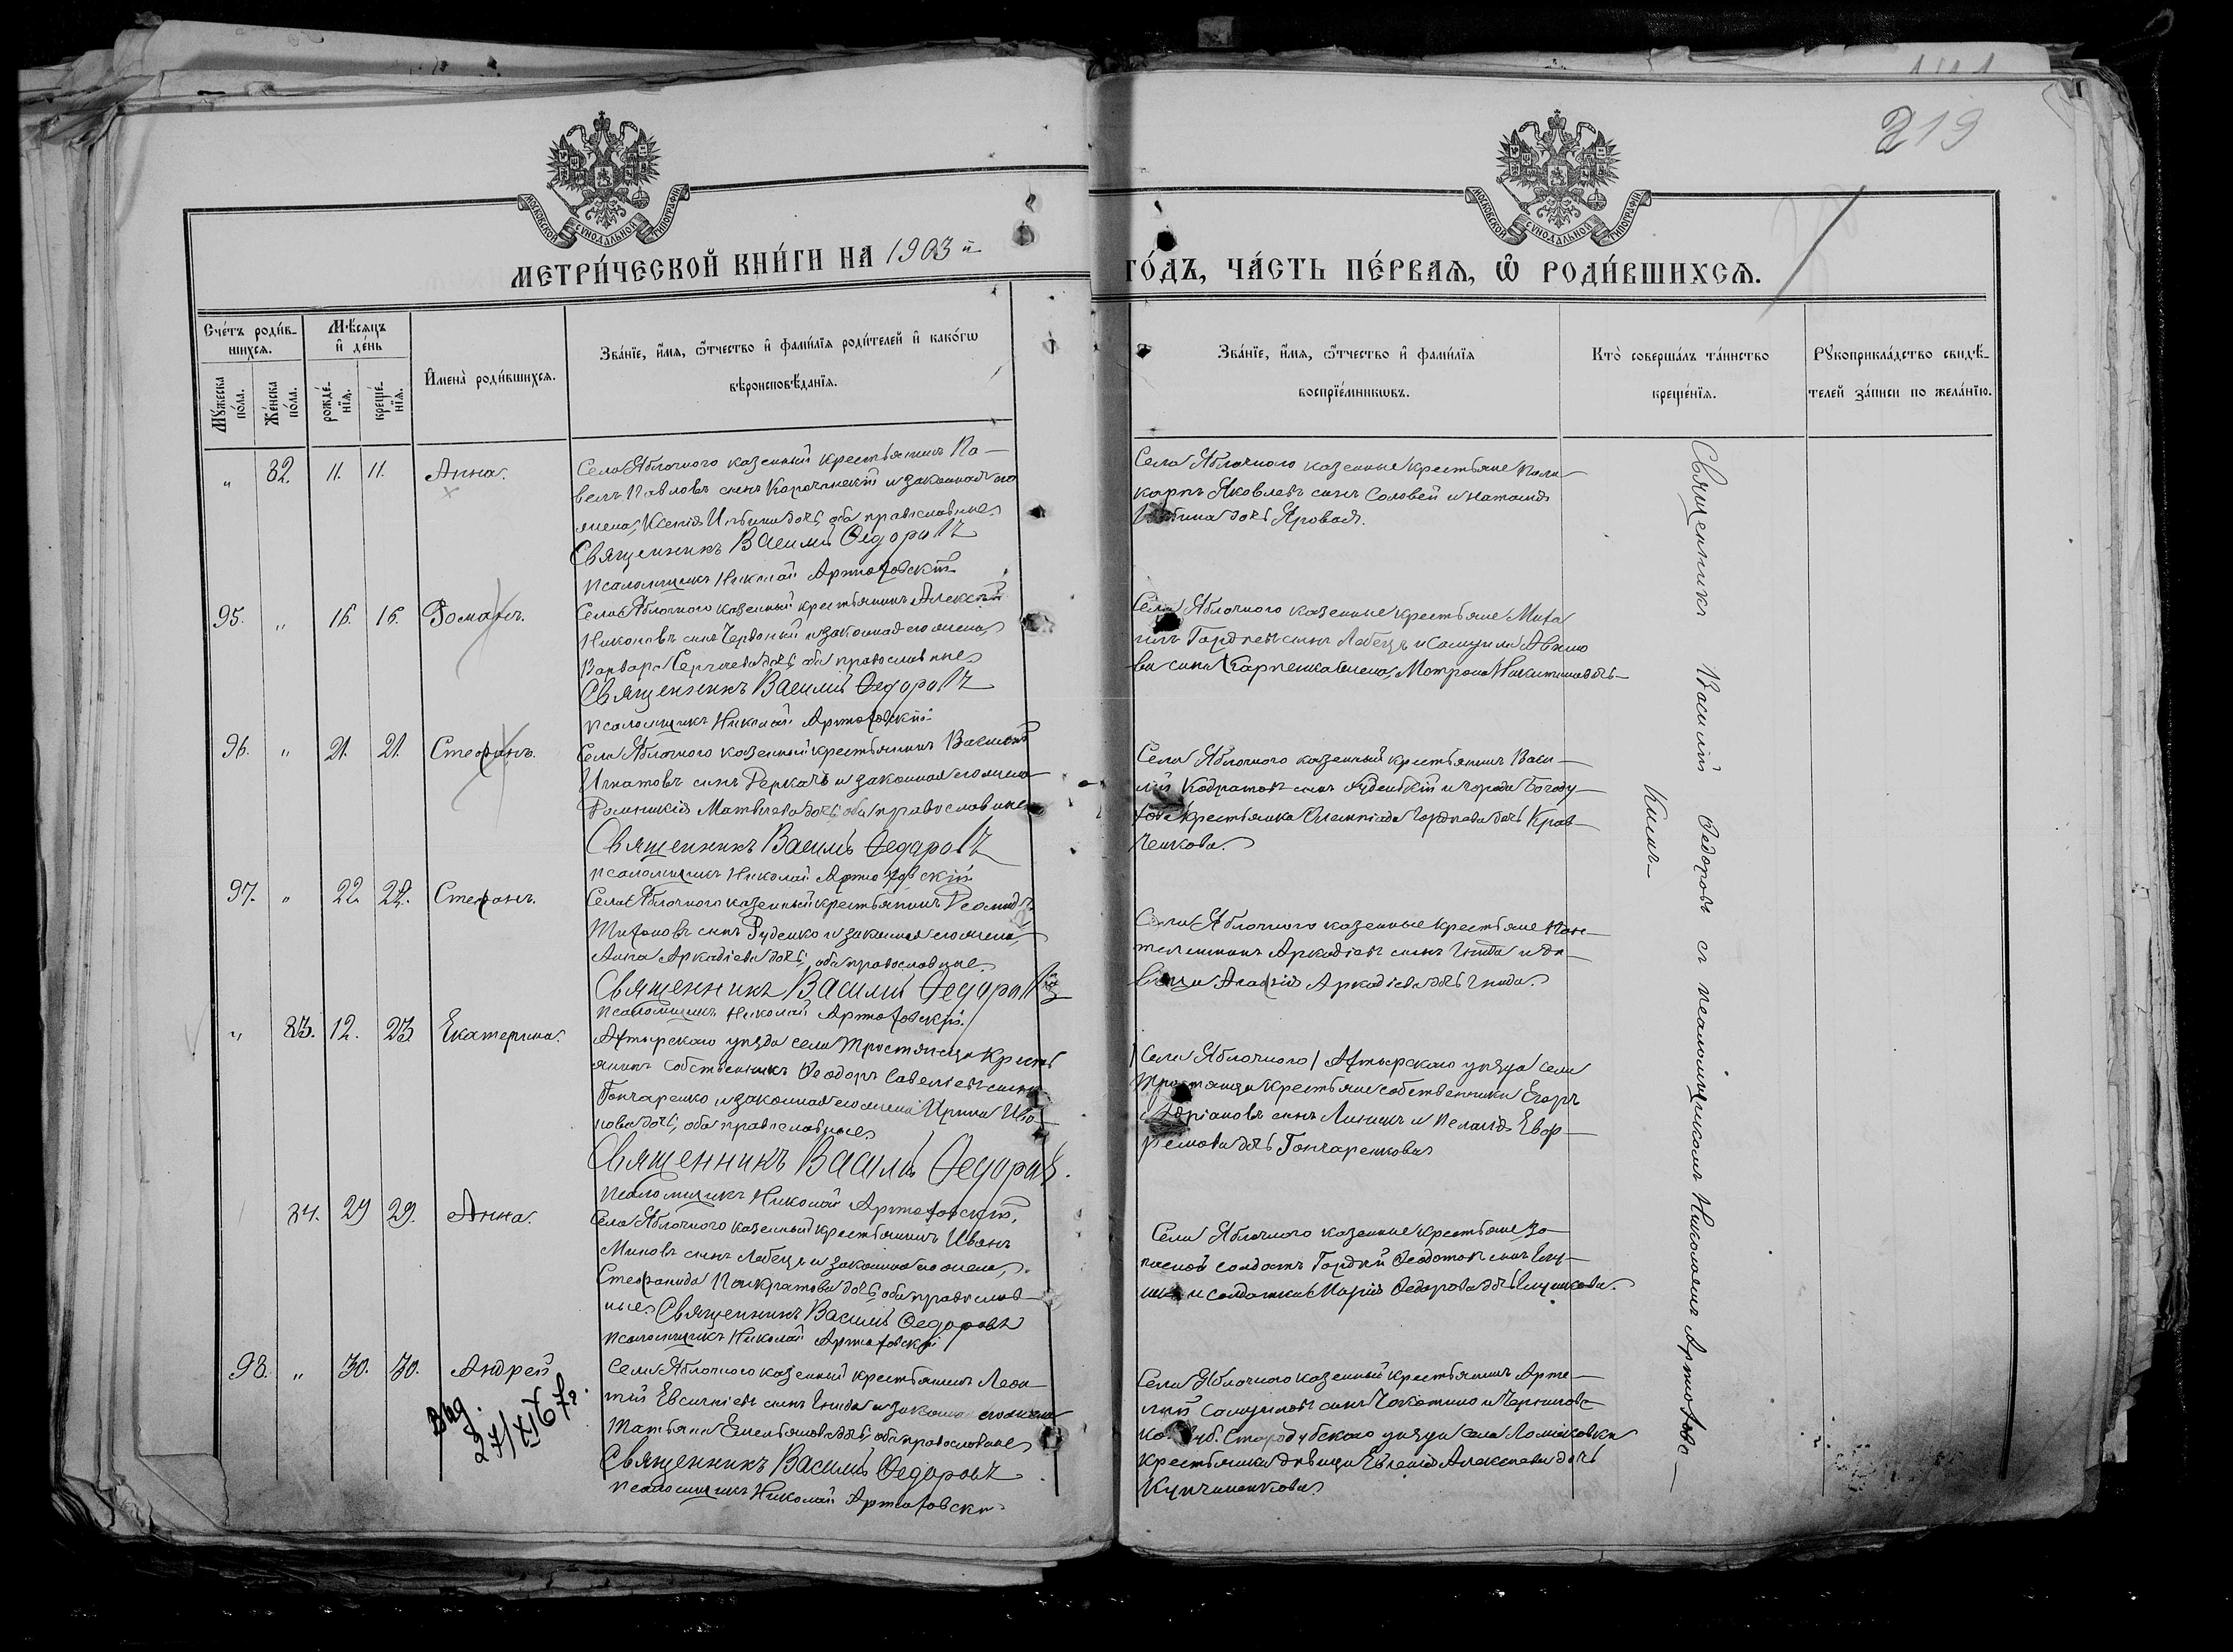 219
МОСКОВСКОЙ СѴНОДАЛЬНОЙ ТИПОГРАФІИ
МОСКОВСКОЙ СѴНОДАЛЬНОЙ ТИПОГРАФІИ
МЕТРИ́ЧЕСКОЙ КНИ́ГИ НА 1903 й
ГО́ДЪ, ЧА́СТЬ ПЕ́РВАѦ, Ѽ РОДИ́ВШИХСѦ.
Сче́тъ роди́вшихсѧ.
Мѣ́сѧцъ и҆ де́нь
Мꙋ́жеска по́ла.
Же́нска по́ла.
рожде́нїѧ.
креще́нїѧ.
И҆мена̀ роди́вшихсѧ.
Зва́нїе, и҆́мѧ, ѻ҆́тчество и҆ фами́лїѧ роди́телей и҆ како́гѡ
вѣроисповѣ́данїѧ.
Зва́нїе, и҆́мѧ, ѻ҆́тчество и҆ фами́лїѧ
воспрїе́мникѡвъ.
Кто̀ соверша́лъ та́инство
креще́нїѧ.
Рꙋкоприкла́дство свидѣ́-
телей за́писи по жела́нїю.
" 82. 11. 11. Анна.
Села Яблочного казенный крестьянинъ Па-
велъ Павловъ сынъ Корочанскій и законная его
жена, Ксенія Ильина дочь, оба православные.
Священникъ Василій Ѳедоровъ
Псаломщикъ Николай Артюховскій
Села Яблочного казенные крестьяне Поли-
карпъ Яковлевъ сынъ Соловей и Наталія
дочь Яровая.
95. " 16. 16. Романъ.
Села Яблочного казенный крестьянинъ Алексѣй
Никоновъ сынъ Червоный и законная его жена,
Варвара Сергиева дочь, оба православные.
Священникъ Василій Ѳедоровъ
Псаломщикъ Николай Артюховскій
Села Яблочного казенные крестьяне Миха-
илъ Гордѣевъ сынъ Лебедь и Самуила
сына Карпенка жена, Матрона Никитина дочь
96. " 21. 21. Стефанъ.
Села Яблочного казенный крестьянинъ Василій
Игнатовъ сынъ Деркачъ и законная его жена
Матвѣева дочь, оба православные.
Священникъ Василій Ѳедоровъ
Псаломщикъ Николай Артюховскій
Села Яблочного казенный крестьянинъ Васи-
лій Кодратовъ сынъ и города Богоду-
хова крестьянка Олимпіада Гордѣева дочь Крав-
ченкова.
97. " 22. 22. Стефанъ.
Села Яблочного казенный крестьянинъ
Тихоновъ сынъ Руденко и законная его жена,
Анна Аркадіева дочь, оба православные.
Священникъ Василій Ѳедоровъ
Псаломщикъ Николай Артюховскій.
Села Яблочного казенные крестьяне Пан-
телеимонъ Аркадіевъ сынъ Гнида и дѣ-
вица Агафія Аркадіева дочь Гнида.
" 83. 12. 23. Екатерина.
Ахтырскаго уѣзда села Тростянца Кресть-
янинъ собственникъ Ѳеодоръ Савеліевъ сынъ
Гончаренко и законная его жена Ирина Ива-
нова дочь, оба православные.
Священникъ Василій Ѳедоровъ.
Псаломщикъ Николай Артюховскій.
Села Яблочного / Ахтырскаго уѣзда села
Тростянца крестьяне собственники Егоръ
сынъ Линникъ и Пелагія Евф-
ремова дочь Гончаренкова
84. 29 29. Анна.
Села Яблочного казенный крестьянинъ Иванъ
Миновъ сынъ Лебедь и законная его жена,
Стефанида Панкратова дочь, оба православ-
ные. Священникъ Василій Ѳедоровъ
Псаломщикъ Николай Артюховскій
Села Яблочного казенные крестьяне за-
пасной солдатъ Гордѣй Ѳеодотовъ сынъ
и солдатка Марія Ѳедорова дочь
98. " 30. 30. Андрей
Выд.
27/XI 67г.
Села Яблочного казенный крестьянинъ Леон-
тій Евсигніевъ сынъ Гнида и законная его жена
Татьяна Емельянова дочь, оба православные
Священникъ Василій Ѳедоровъ
Псаломщикъ Николай Артюховскій
Села Яблочного казенный крестьянинъ Арте-
мій Самуиловъ сынъ и Чернигов-
губ. Стародубскаго уѣзда села Ломаковки
крестьянка дѣвица Евгенія Алексѣева дочь
Священникъ Василій Ѳедоровъ съ псаломщикомъ Николаемъ Артюховс-
кимъ.